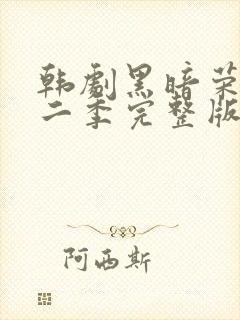 韩剧黑暗荣
二季完整版
阿西斯